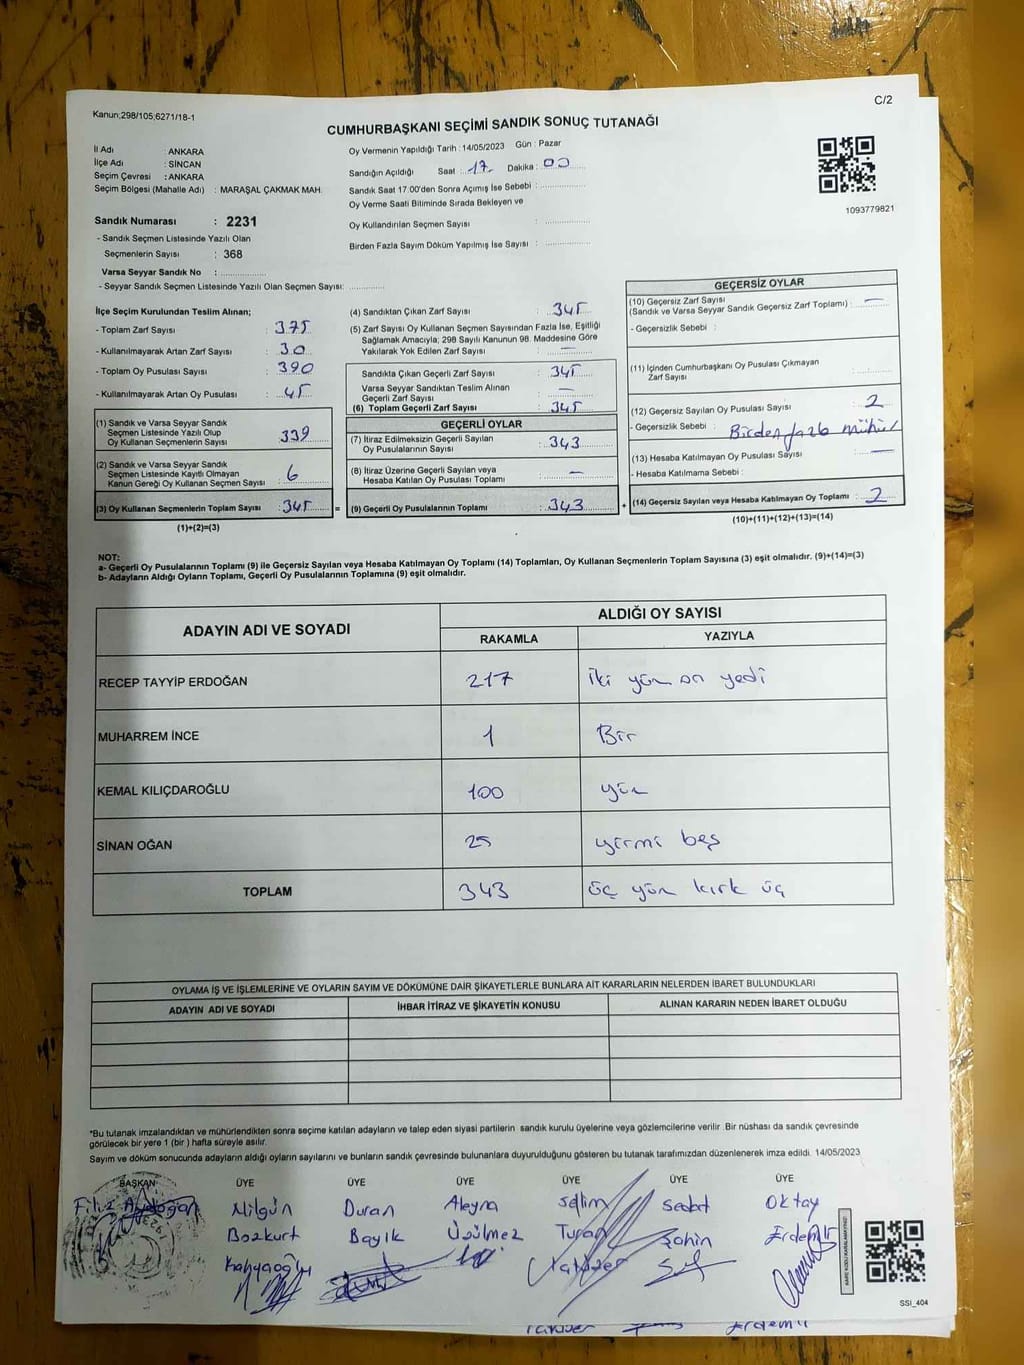 Kanun;298/105;6271/18-1
C/2
CUMHURBAŞKANI SEÇİMİ SANDIK SONUÇ TUTANAĞI
İl Adı : ANKARA
İlçe Adı : SİNCAN
Seçim Çevresi : ANKARA
Seçim Bölgesi (Mahalle Adı) : MARAŞAL ÇAKMAK MAH.
Sandık Numarası : 2231
- Sandık Seçmen Listesinde Yazılı Olan
Seçmenlerin Sayısı : 368
Varsa Seyyar Sandık No :
- Seyyar Sandık Seçmen Listesinde Yazılı Olan Seçmen Sayısı:
Oy Vermenin Yapıldığı Tarih : 14/05/2023 Gün : Pazar
Sandığın Açıldığı Saat : 17 Dakika : 00
Sandık Saat 17.00'den Sonra Açımış İse Sebebi :
Oy Verme Saati Bitiminde Sırada Bekleyen ve
Oy Kullandırılan Seçmen Sayısı :
Birden Fazla Sayım Döküm Yapılmış İse Sayısı :
1093779821
İlçe Seçim Kurulundan Teslim Alınan;
- Toplam Zarf Sayısı : 375
- Kullanılmayarak Artan Zarf Sayısı : 30
- Toplam Oy Pusulası Sayısı : 390
- Kullanılmayarak Artan Oy Pusulası : 45
(1) Sandık ve Varsa Seyyar Sandık
Seçmen Listesinde Yazılı Olup
Oy Kullanan Seçmenlerin Sayısı : 339
(2) Sandık ve Varsa Seyyar Sandık
Seçmen Listesinde Kayıtlı Olmayan
Kanun Gereği Oy Kullanan Seçmen Sayısı : 6
(3) Oy Kullanan Seçmenlerin Toplam Sayısı : 345 =
(1)+(2)=(3)
(4) Sandıktan Çıkan Zarf Sayısı : 345
(5) Zarf Sayısı Oy Kullanan Seçmen Sayısından Fazla İse, Eşitliği
Sağlamak Amacıyla; 298 Sayılı Kanunun 98. Maddesine Göre
Yakılarak Yok Edilen Zarf Sayısı : —
Sandıkta Çıkan Geçerli Zarf Sayısı : 345
Varsa Seyyar Sandıktan Teslim Alınan
Geçerli Zarf Sayısı : —
(6) Toplam Geçerli Zarf Sayısı : 345
GEÇERLİ OYLAR
(7) İtiraz Edilmeksizin Geçerli Sayılan
Oy Pusulalarının Sayısı : 343
(8) İtiraz Üzerine Geçerli Sayılan veya
Hesaba Katılan Oy Pusulası Toplamı : —
(9) Geçerli Oy Pusulalarının Toplamı : 343 +
GEÇERSİZ OYLAR
(10) Geçersiz Zarf Sayısı
(Sandık ve Varsa Seyyar Sandık Geçersiz Zarf Toplamı) : —
- Geçersizlik Sebebi :
(11) İçinden Cumhurbaşkanı Oy Pusulası Çıkmayan
Zarf Sayısı :
(12) Geçersiz Sayılan Oy Pusulası Sayısı : 2
- Geçersizlik Sebebi : Birden fazla mühür
(13) Hesaba Katılmayan Oy Pusulası Sayısı : —
- Hesaba Katılmama Sebebi :
(14) Geçersiz Sayılan veya Hesaba Katılmayan Oy Toplamı : 2
(10)+(11)+(12)+(13)=(14)
NOT:
a- Geçerli Oy Pusulalarının Toplamı (9) ile Geçersiz Sayılan veya Hesaba Katılmayan Oy Toplamı (14) Toplamları, Oy Kullanan Seçmenlerin Toplam Sayısına (3) eşit olmalıdır. (9)+(14)=(3)
b- Adayların Aldığı Oyların Toplamı, Geçerli Oy Pusulalarının Toplamına (9) eşit olmalıdır.
ADAYIN ADI VE SOYADI ALDIĞI OY SAYISI
RAKAMLA YAZIYLA
RECEP TAYYİP ERDOĞAN 217 iki yüz on yedi
MUHARREM İNCE 1 Bir
KEMAL KILIÇDAROĞLU 100 yüz
SİNAN OĞAN 25 yirmi beş
TOPLAM 343 üç yüz kırk üç
OYLAMA İŞ VE İŞLEMLERİNE VE OYLARIN SAYIM VE DÖKÜMÜNE DAİR ŞİKAYETLERLE BUNLARA AİT KARARLARIN NELERDEN İBARET BULUNDUKLARI
ADAYIN ADI VE SOYADI İHBAR İTİRAZ VE ŞİKAYETİN KONUSU ALINAN KARARIN NEDEN İBARET OLDUĞU
*Bu tutanak imzalandıktan ve mühürlendikten sonra seçime katılan adayların ve talep eden siyasi partilerin sandık kurulu üyelerine veya gözlemcilerine verilir. Bir nüshası da sandık çevresinde
görülecek bir yere 1 (bir ) hafta süreyle asılır.
Sayım ve döküm sonucunda adayların aldığı oyların sayılarını ve bunların sandık çevresinde bulunanlara duyurulduğunu gösteren bu tutanak tarafımızdan düzenlenerek imza edildi. 14/05/2023
BAŞKAN ÜYE ÜYE ÜYE ÜYE ÜYE ÜYE
Filiz Aydoğan Nilgün Duran Aleyna Selim Sedat Oktay
Bozkurt Bayık Üzülmez Turan Şahin Erdemir
Kahyaoğlu
SSI_404